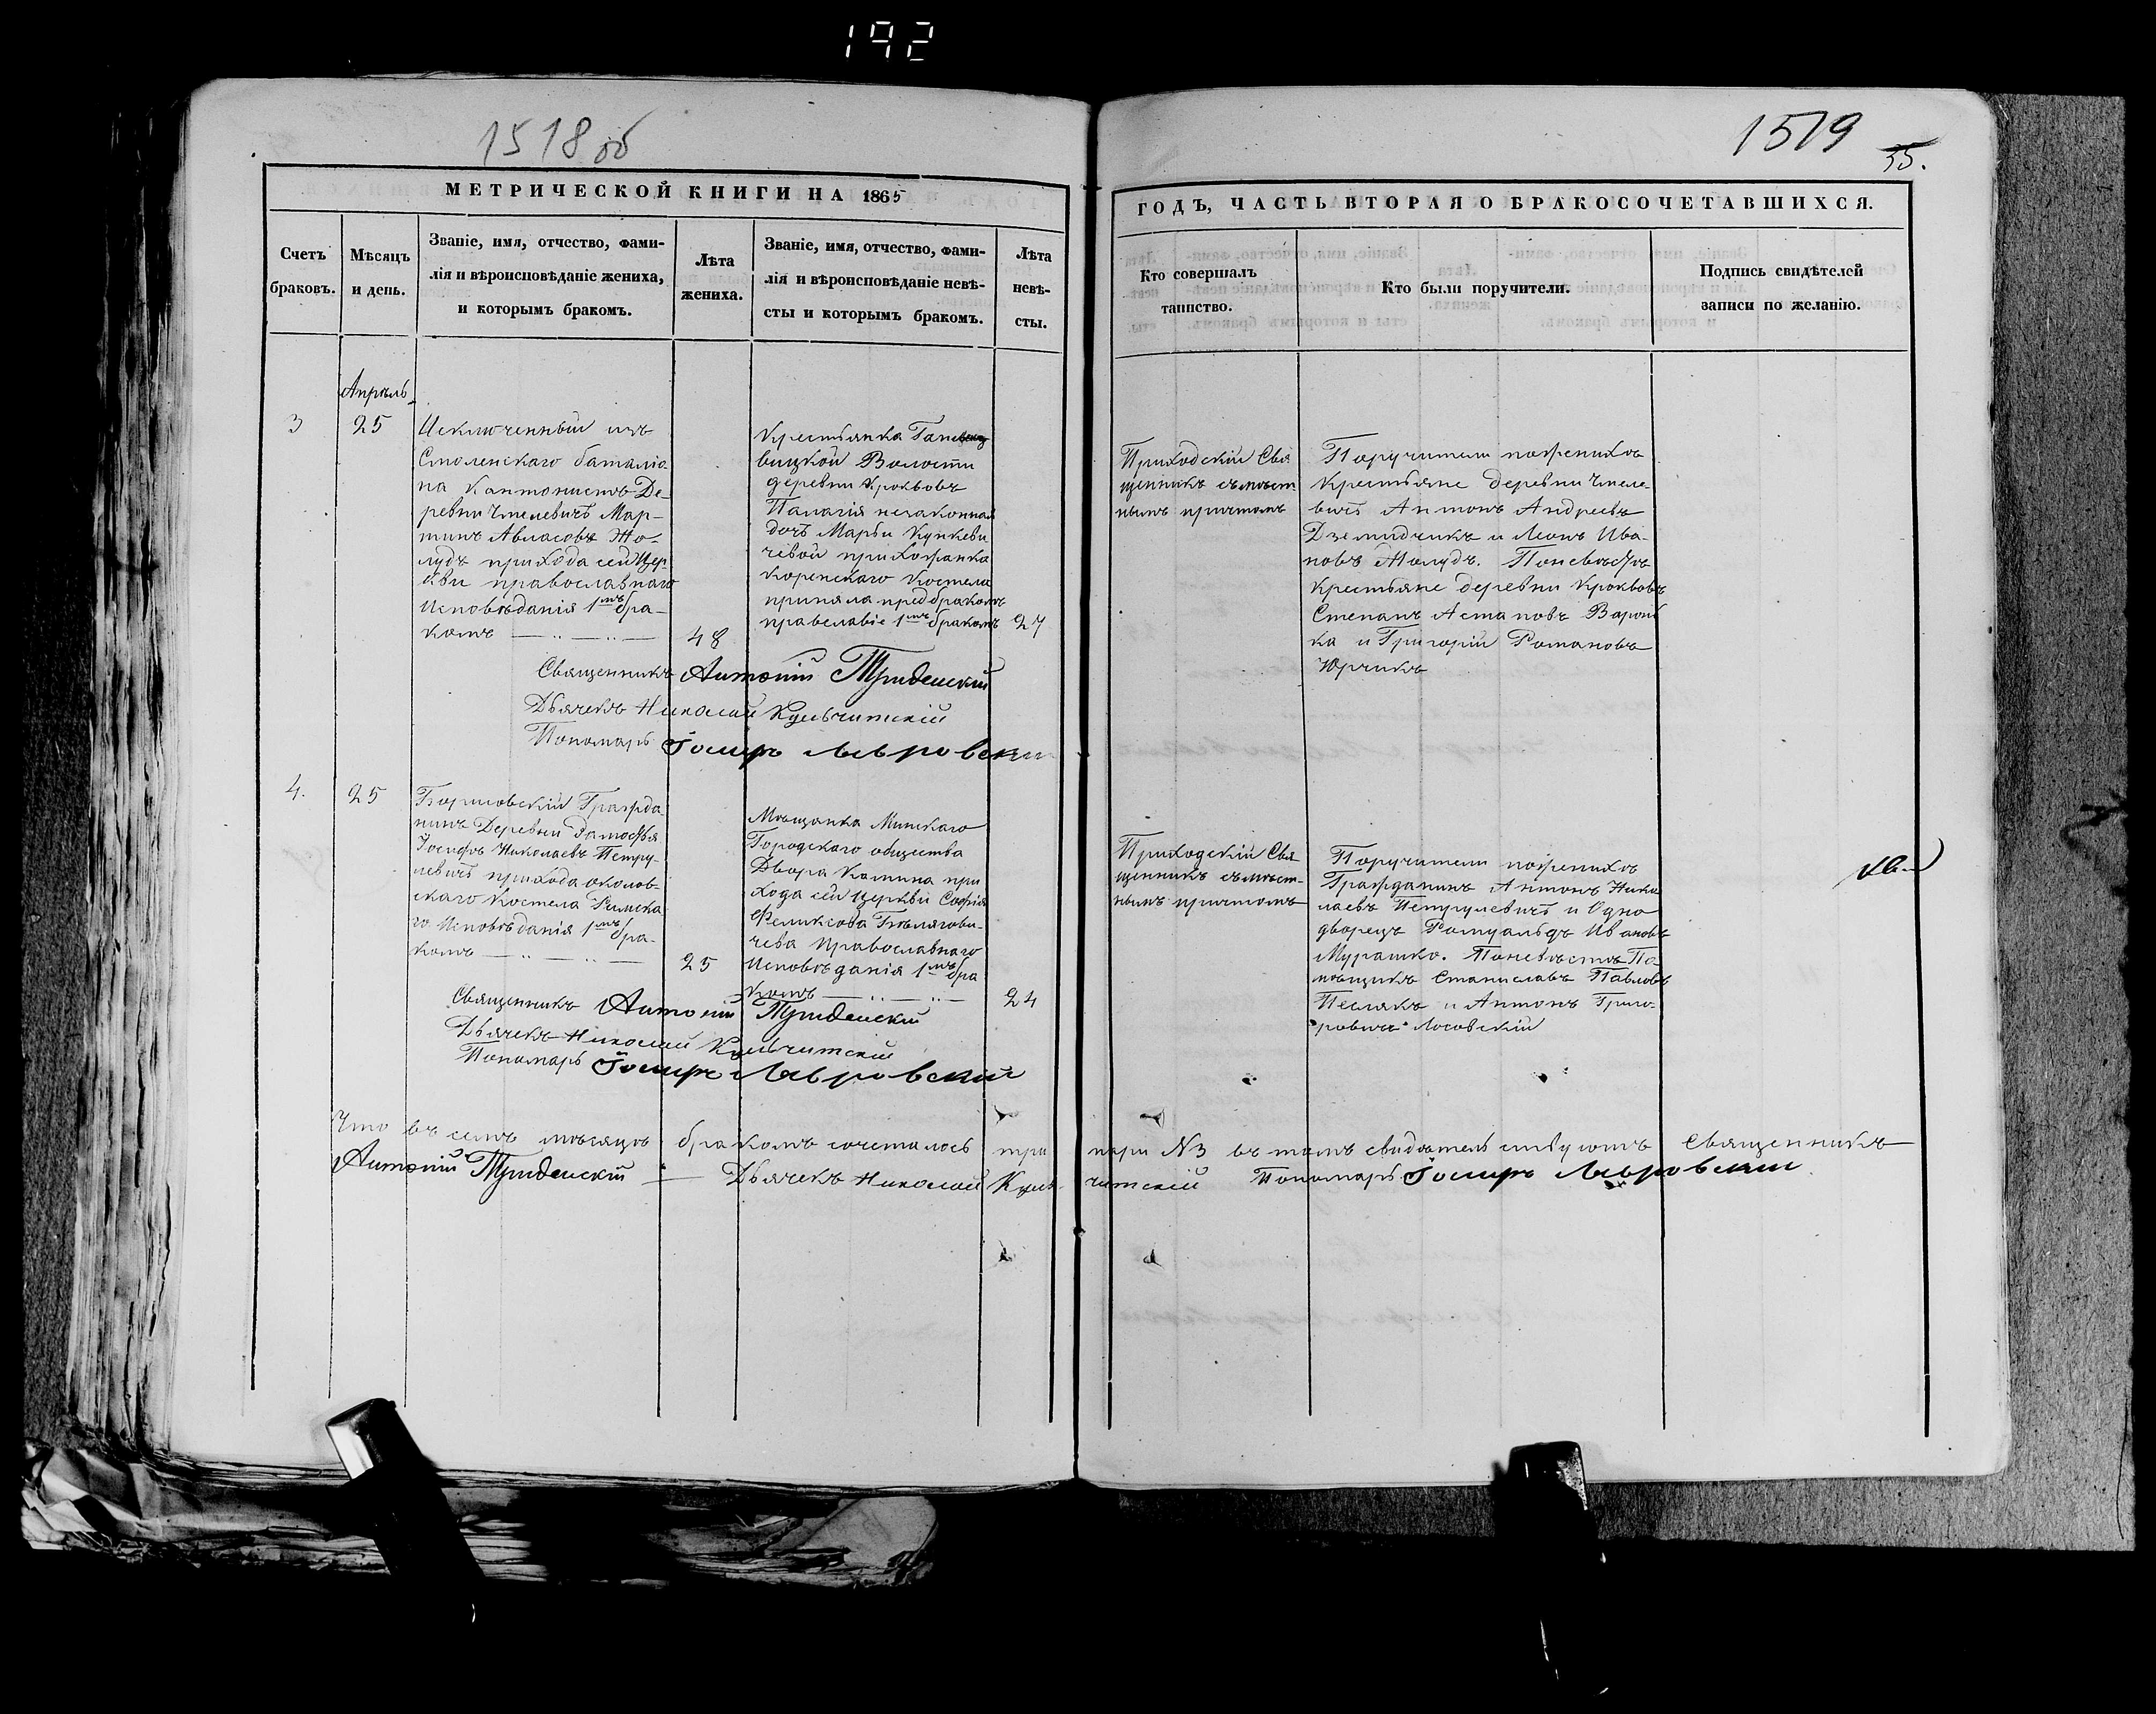 192
1518 об
1519
35.
МЕТРИЧЕСКОЙ КНИГИ НА 1865
ГОДЪ, ЧАСТЬ ВТОРАЯ О БРАКОСОЧЕТАВШИХСЯ.
Счетъ
браковъ.
Мѣсяцъ
и день.
Званіе, имя, отчество, фами-
лія и вѣроисповѣданіе жениха,
и которымъ бракомъ.
Лѣта
жениха.
Званіе, имя, отчество, фами-
лія и вѣроисповѣданіе невѣ-
сты и которымъ бракомъ.
Лѣта
невѣ-
сты.
Кто совершалъ
таинство.
Кто были поручители.
Подпись свидѣтелей
записи по желанію.
Апрѣль
3
25
Исключенный изъ
Смоленскаго баталіо
на Кантонистовъ Де-
ревни Чмелевичъ Мар-
тинъ Авласовъ Жо-
лудъ прихода сей Цер-
кви православнаго
Исповѣданія 1мъ бра-
комъ
48
Крестьянка Гане
вицкой Волости
деревни Кроквовъ
Палагія незаконная
дочь Марьи Кункеви
чевой прихожанка
Коренскаго Костела
приняла предбракомъ
православіе 1мъ бракомъ
27
Приходскій Свя
щенникъ съ мѣст
нымъ причтомъ
Поручители пожениховъ
Крестьяне деревни Чмеле-
вичъ Антонъ Андреевъ
Дземидчикъ и Леонъ Ива-
новъ Жолудъ. Поневѣстѣ
Крестьяне деревни Кроквовъ
Степанъ Астаповъ Варой
ка и Григорій Романовъ
Юрчикъ
Священникъ Антоній Тридецкій
Дьячекъ Николай Кульчитскій
Пономарь Іосифъ Лавровскій
4.
25
Борисовскій Гражда
нинъ Деревни Замосфья
Іосифъ Николаевъ Петру-
левичъ прихода околов-
скаго Костела Римска-
го Исповѣданія 1мъ бра-
комъ
25
Мѣщанка Минскаго
Городскаго общества
Двора Камина при
хода сей церкви Софія
Феликсова Бѣлягови-
чева Православнаго
Исповѣданія 1мъ бра
комъ
24
Приходскій Свя
щенникъ съ мѣст-
нымъ причтомъ
Поручители пожениховъ
Гражданинъ Антонъ Нико
лаевъ Петрулевичъ и Одно
дворецъ Ромуальдъ Ивановъ
Мурашко. Поневѣстѣ По-
мѣщикъ Станиславъ Павловъ
Песлякъ и Антонъ Григо-
ровичъ Лосовскій
Священникъ Антоній Тридецкій
Дьячекъ Николай Кульчитскій
Пономарь Іосифъ Лавровскій
Что въ семъ мѣсяцѣ бракомъ сочеталось три пари N3 въ томъ свидѣтельствуютъ Священникъ
Антоній Тридецкій Дьячекъ Николай Куль- читскій Пономарь Іосифъ Лавровскій